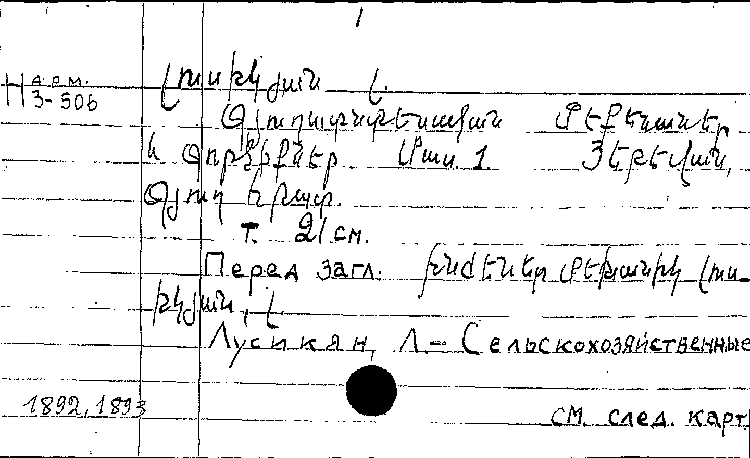 1
Н арм.
3-506
Լուսիկյան Լ.
Գյուղատնտեսական մեքենաներ
և գործիքներ. Մաս. 1. Յերեվան,
Գյուղ հրատ.
т. 21 см.
Перед загл: ինժեներ մեխանիկ Լու-
սիկյան, Լ.
Лусикян, Л.- Сельскохозяйственные
1892, 1893
см. след. карт.